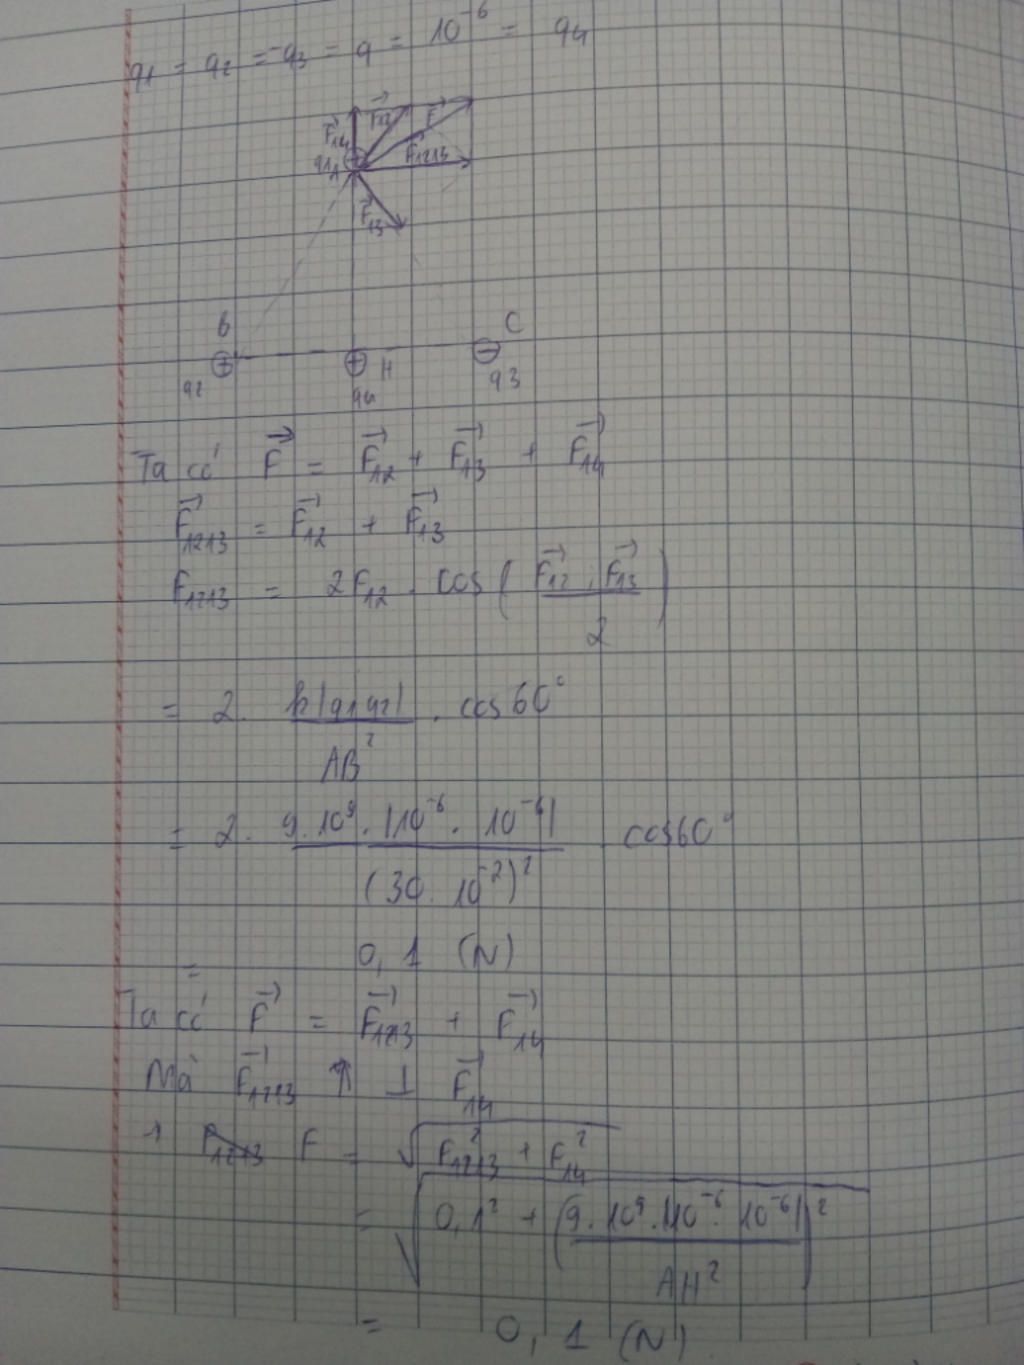 q1 = q2 = -q3 = q = 10^-6 = q4
F14 F12 F
q1 A F1213
F13
B C
q2 q4 H q3
Ta có F = F12 + F13 + F14
F1213 = F12 + F13
F1213 = 2F12 . cos ( F12 , F13 / 2 )
= 2. k|q1q2| / AB² . cos60°
= 2. 9.10^9 . |10^-6 . 10^-6| / (30.10^-2)² . cos60°
= 0,1 (N)
Ta có F = F1213 + F14
Mà F1213 ⊥ F14
→ F = √(F1213² + F14²)
= √(0,1² + (9.10^9.|10^-6.10^-6| / AH²)²)
= 0,1 (N)